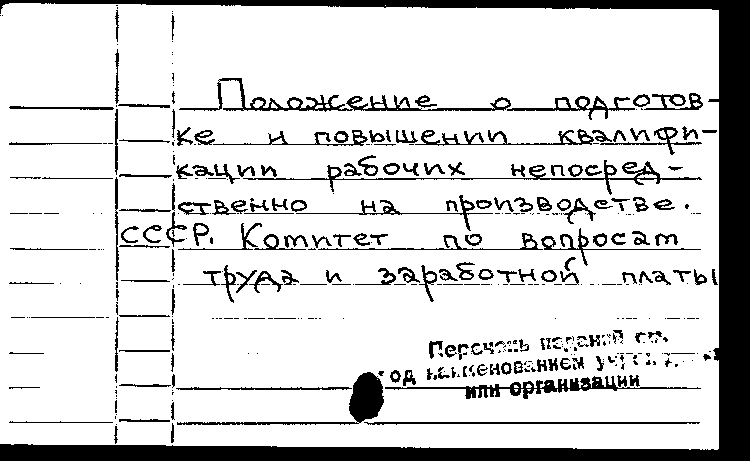 Положение о подготов-
ке и повышении квалифи-
кации рабочих непосред-
ственно на производстве.
СССР. Комитет по вопросам
труда и заработной платы
Перечень изданий см.
под наименованием учрежден
или организации